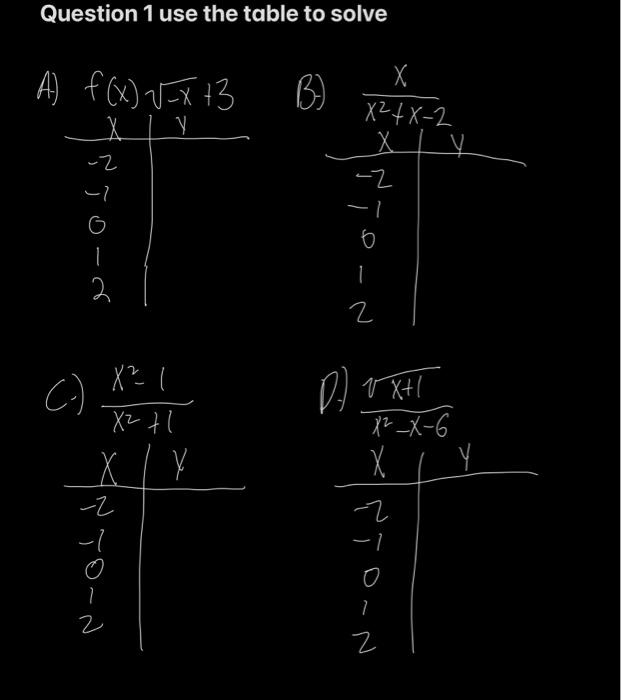 Question 1 use the table to solve
A) f(x) √-x +3
X Y
-2
-1
0
1
2
B) x/(x²+x-2)
X Y
-2
-1
0
1
2
C.) x²-1/(x²+1)
X Y
-2
-1
0
1
2
D.) √x+1/(x²-x-6)
X Y
-2
-1
0
1
2